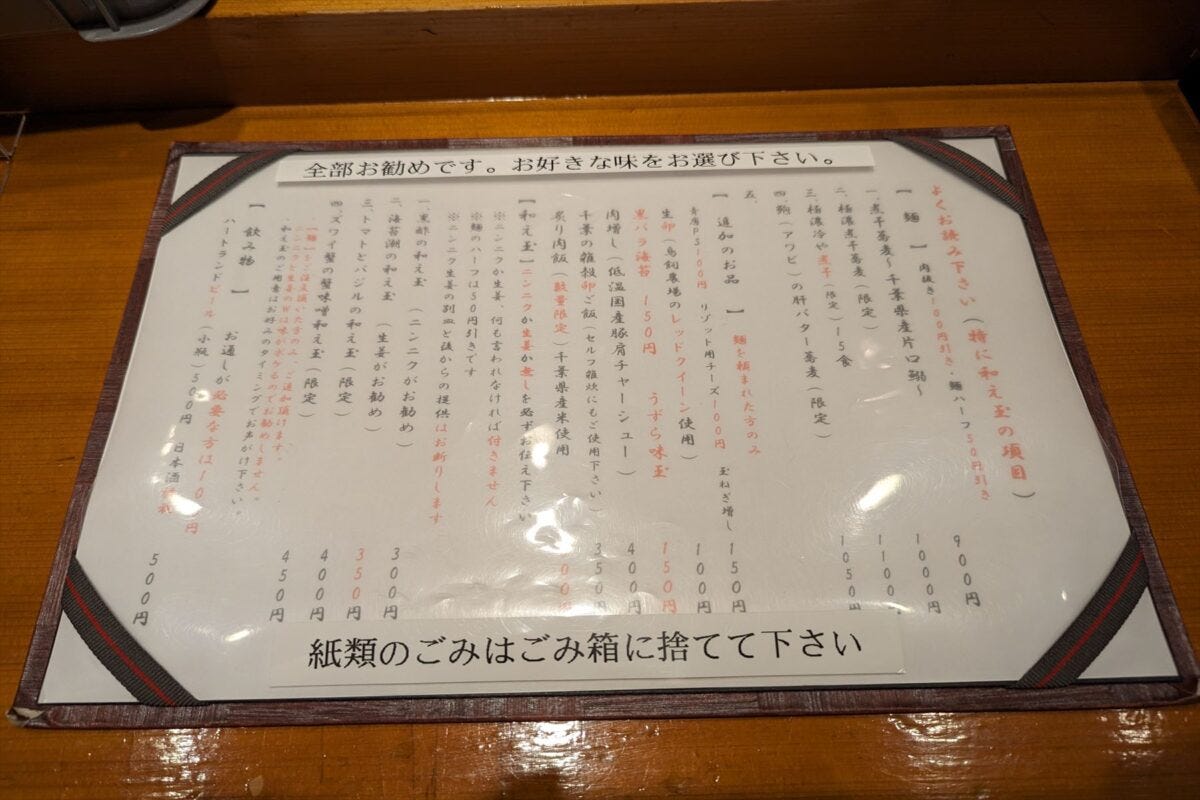 全部お勧めです。お好きな味をお選び下さい。
よくお読み下さい(特に和え玉の項目)
【 麺 】肉抜き100円引き・麺ハーフ50円引き
一、煮干蕎麦～千葉県産片口鰯～ 900円
二、極濃煮干蕎麦(限定) 1000円
三、極濃冷や煮干(限定)15食 1100円
四、鮑(アワビ)の肝バター蕎麦(限定) 1050円
五、
【 追加のお品 】麺を頼まれた方のみ
青唐PS100円 リゾット用チーズ100円 玉ねぎ増し 150円
生卵(鳥飼農場のレッドクイーン使用) 100円
黒バラ海苔 150円 うずら味玉 150円
肉増し(低温国産豚肩チャーシュー) 400円
千葉の雑穀卵ご飯(セルフ雑炊にもご使用下さい) 350円
炙り肉飯(数量限定)千葉県産米使用 00円
【和え玉】ニンニクか生姜か無しを必ずお伝え下さい
※ニンニクか生姜、何も言われなければ付きません
※麺のハーフは50円引きです
※ニンニク生姜の別皿と後からの提供はお断りします
一、黒酢の和え玉 (ニンニクがお勧め) 300円
二、海苔潮の和え玉 (生姜がお勧め) 350円
三、トマトとバジルの和え玉(限定) 400円
四、ズワイ蟹の蟹味噌和え玉(限定) 450円
【麺】をご注文頂いた方のみ、ご追加頂けます。
ニンニクと生姜のWは味がボケるのでお勧めしません。
和え玉のご用意はお好みのタイミングでお声がけ下さい。
【 飲み物 】 お通しが必要な方は100円
ハートランドビール(小瓶)500円 日本酒 500円
紙類のごみはごみ箱に捨てて下さい